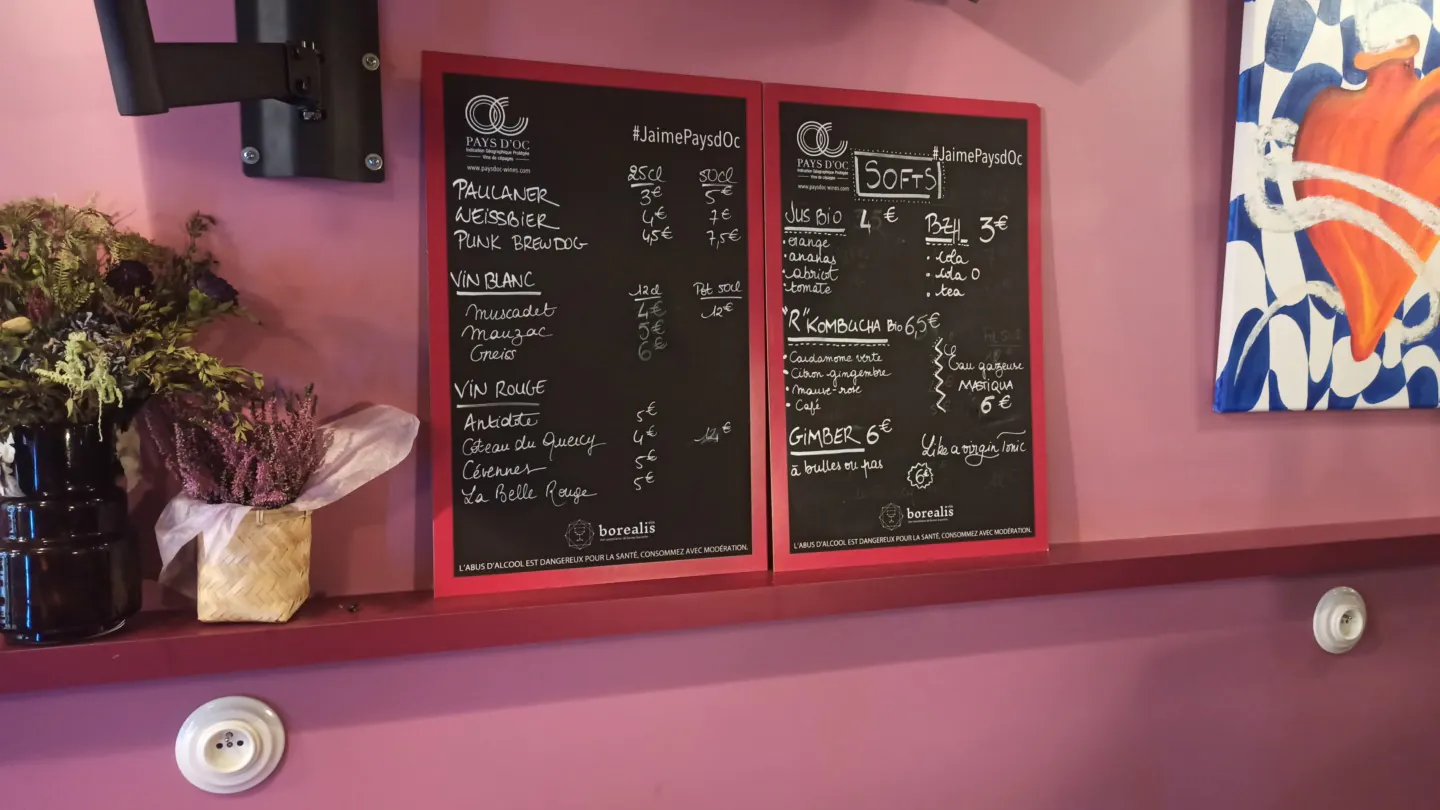 PAYS D'OC
Indication Géographique Protégée
Vins de cépages
www.paysdoc-wines.com
#JaimePaysdOc
25cl 50cl
PAULANER 3€ 5€
WEISSBIER 4€ 7€
PUNK BREWDOG 4,5€ 7,5€
VIN BLANC 12cl Pot 50cl
Muscadet 4€ 12€
Mauzac 5€
Gneiss 6€
VIN ROUGE
Antidote 5€
Côteau du Quercy 4€
Cévennes 5€
La Belle Rouge 5€
borealis
L'ABUS D'ALCOOL EST DANGEREUX POUR LA SANTÉ, CONSOMMEZ AVEC MODÉRATION.
PAYS D'OC
Indication Géographique Protégée
Vins de cépages
www.paysdoc-wines.com
#JaimePaysdOc
SOFTS
JUS BIO 4€
• orange
• ananas
• abricot
• tomate
BZH 3€
• cola
• cola 0
• tea
"R" KOMBUCHA BIO 6,5€
• Cardamome verte
• Citron gingembre
• Mauve-rose
• Café
Eau gazeuse
MASTIQUA
6€
GIMBER 6€
à bulles ou pas
Like a virgin Tonic
6€
borealis
L'ABUS D'ALCOOL EST DANGEREUX POUR LA SANTÉ, CONSOMMEZ AVEC MODÉRATION.